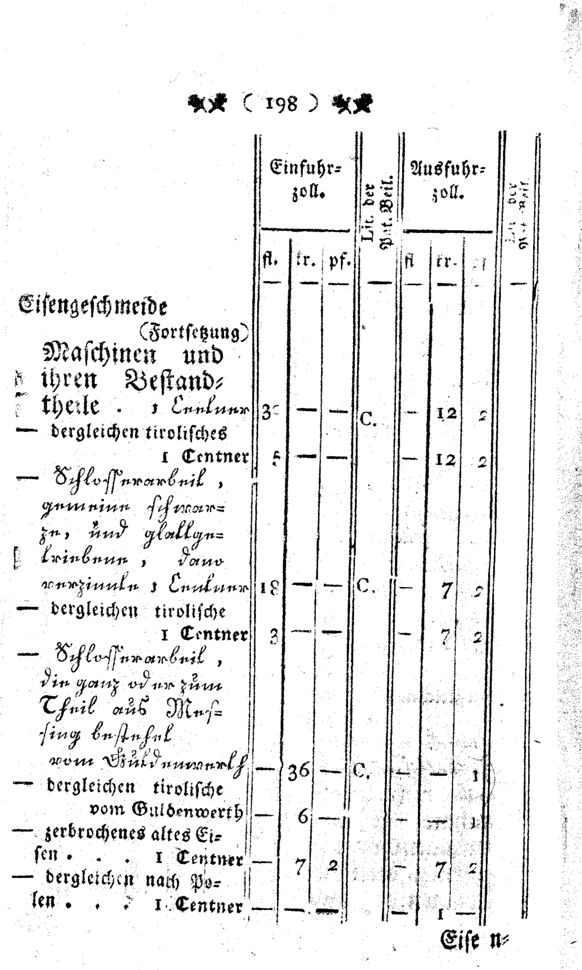 ( 198 )
Einfuhr= zoll. Lit. der Pat. Beil. Ausfuhr= zoll. Lit. der Pat. Beil.
fl. kr. pf. fl kr. pf
Eisengeschmeide
(Fortsetzung)
Maschinen und
ihren Bestand=
theile . 1 Centner — — C. — 12 2
— dergleichen tirolisches
1 Centner 5 — — — 12 2
— Schlosserarbeit,
gemeine schwar=
ze, und glattge=
triebene, dann
verzinnte 1 Centner 18 — — C. — 7 2
— dergleichen tirolische
1 Centner 3 — — — 7 2
— Schlosserarbeit,
die ganz oder zum
Theil aus Mes=
sing bestehet
vom Guldenwerth — 36 — C. — — 1
— dergleichen tirolische
vom Guldenwerth — 6 — — — 1
— zerbrochenes altes Ei=
sen . . . 1 Centner — 7 2 — 7 2
— dergleichen nach Po=
len . . . 1 Centner — — — — 1 —
Eisen=